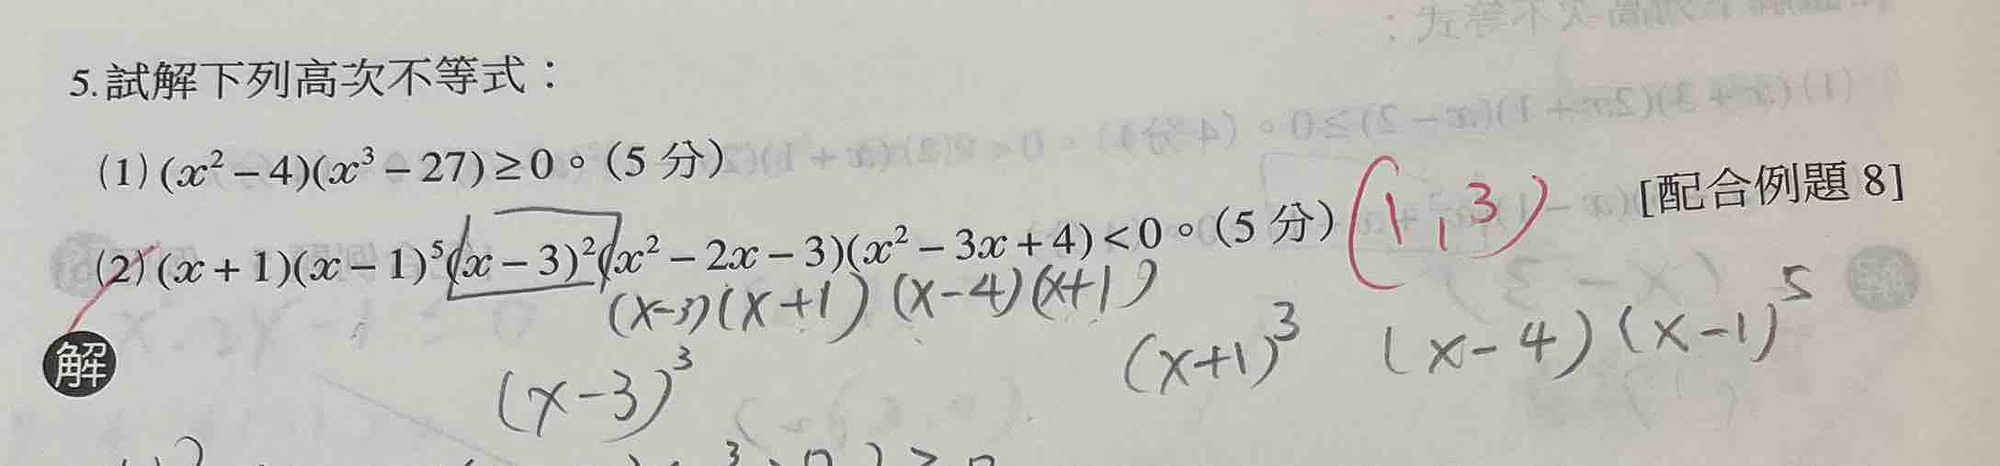 5.試解下列高次不等式：
(1)(x²－4)(x³－27)≥0。(5 分)
(2)(x＋1)(x－1)⁵(x－3)²(x²－2x－3)(x²－3x＋4)<0。(5 分) (1,3) [配合例題 8]
(x-3)(x+1) (x-4)(x+1)
解 (x-3)³ (x+1)³ (x-4)(x-1)⁵